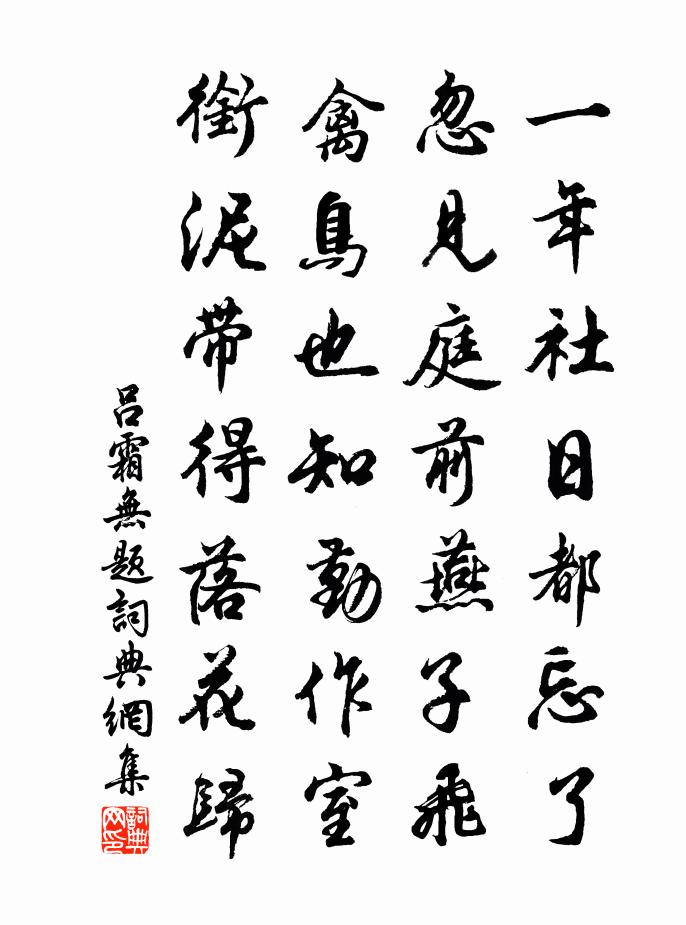 一年社日都忘了
忽見庭前燕子飛
禽鳥也知勤作室
銜泥帶得落花歸
吕霜無題詞典網集
詞典网印